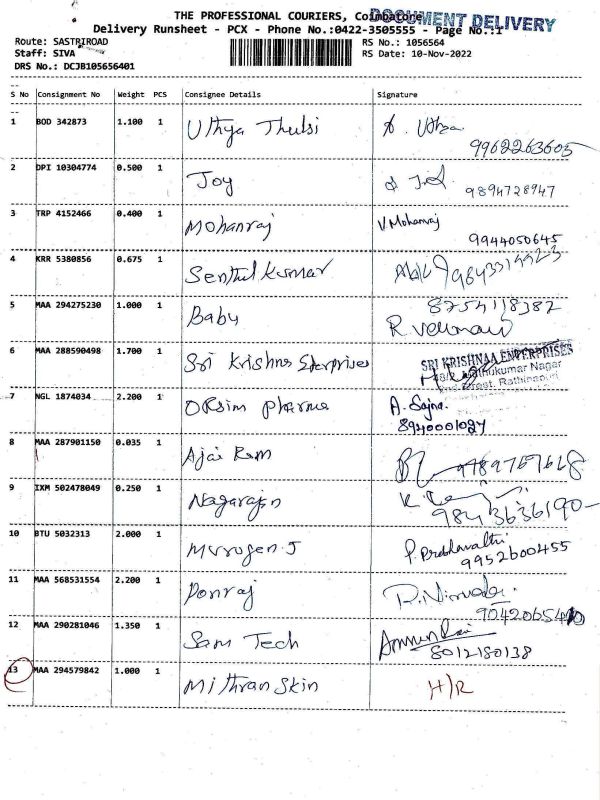 THE PROFESSIONAL COURIERS, Coimbatore
DOCUMENT DELIVERY
Delivery Runsheet - PCX - Phone No.:0422-3505555 - Page No.:1
Route: SASTRIROAD RS No.: 1056564
Staff: SIVA RS Date: 10-Nov-2022
DRS No.: DCJB105656401
S No Consignment No Weight PCS Consignee Details Signature
1 BOD 342873 1.100 1 Uthya Thulsi
9962263605
2 DPI 10304774 0.500 1 Joy
9894728947
3 TRP 4152466 0.400 1 Mohanraj V Mohanraj
9944050645
4 KRR 5380856 0.675 1 Senthil Kumar
8754118382
5 MAA 294275230 1.000 1 Baby R
6 MAA 288590498 1.700 1 Sri Krishna Enterprises SRI KRISHNAA ENTERPRISES
Muthukumar Nagar
Street, Rathinapuri
7 NGL 1874034 2.200 1 ORsim pharma A. Sajna.
8940001027
8 MAA 287901150 0.035 1 Ajai Ram
9 IXM 502478049 0.250 1 Nagarajan
9843636190
10 BTU 5032313 2.000 1 Murugen.J P. Prabhavathi
9952600455
11 MAA 568531554 2.200 1 Ponraj
12 MAA 290281046 1.350 1 Sam Tech
8012180138
13 MAA 294579842 1.000 1 Mithran Skin H/R